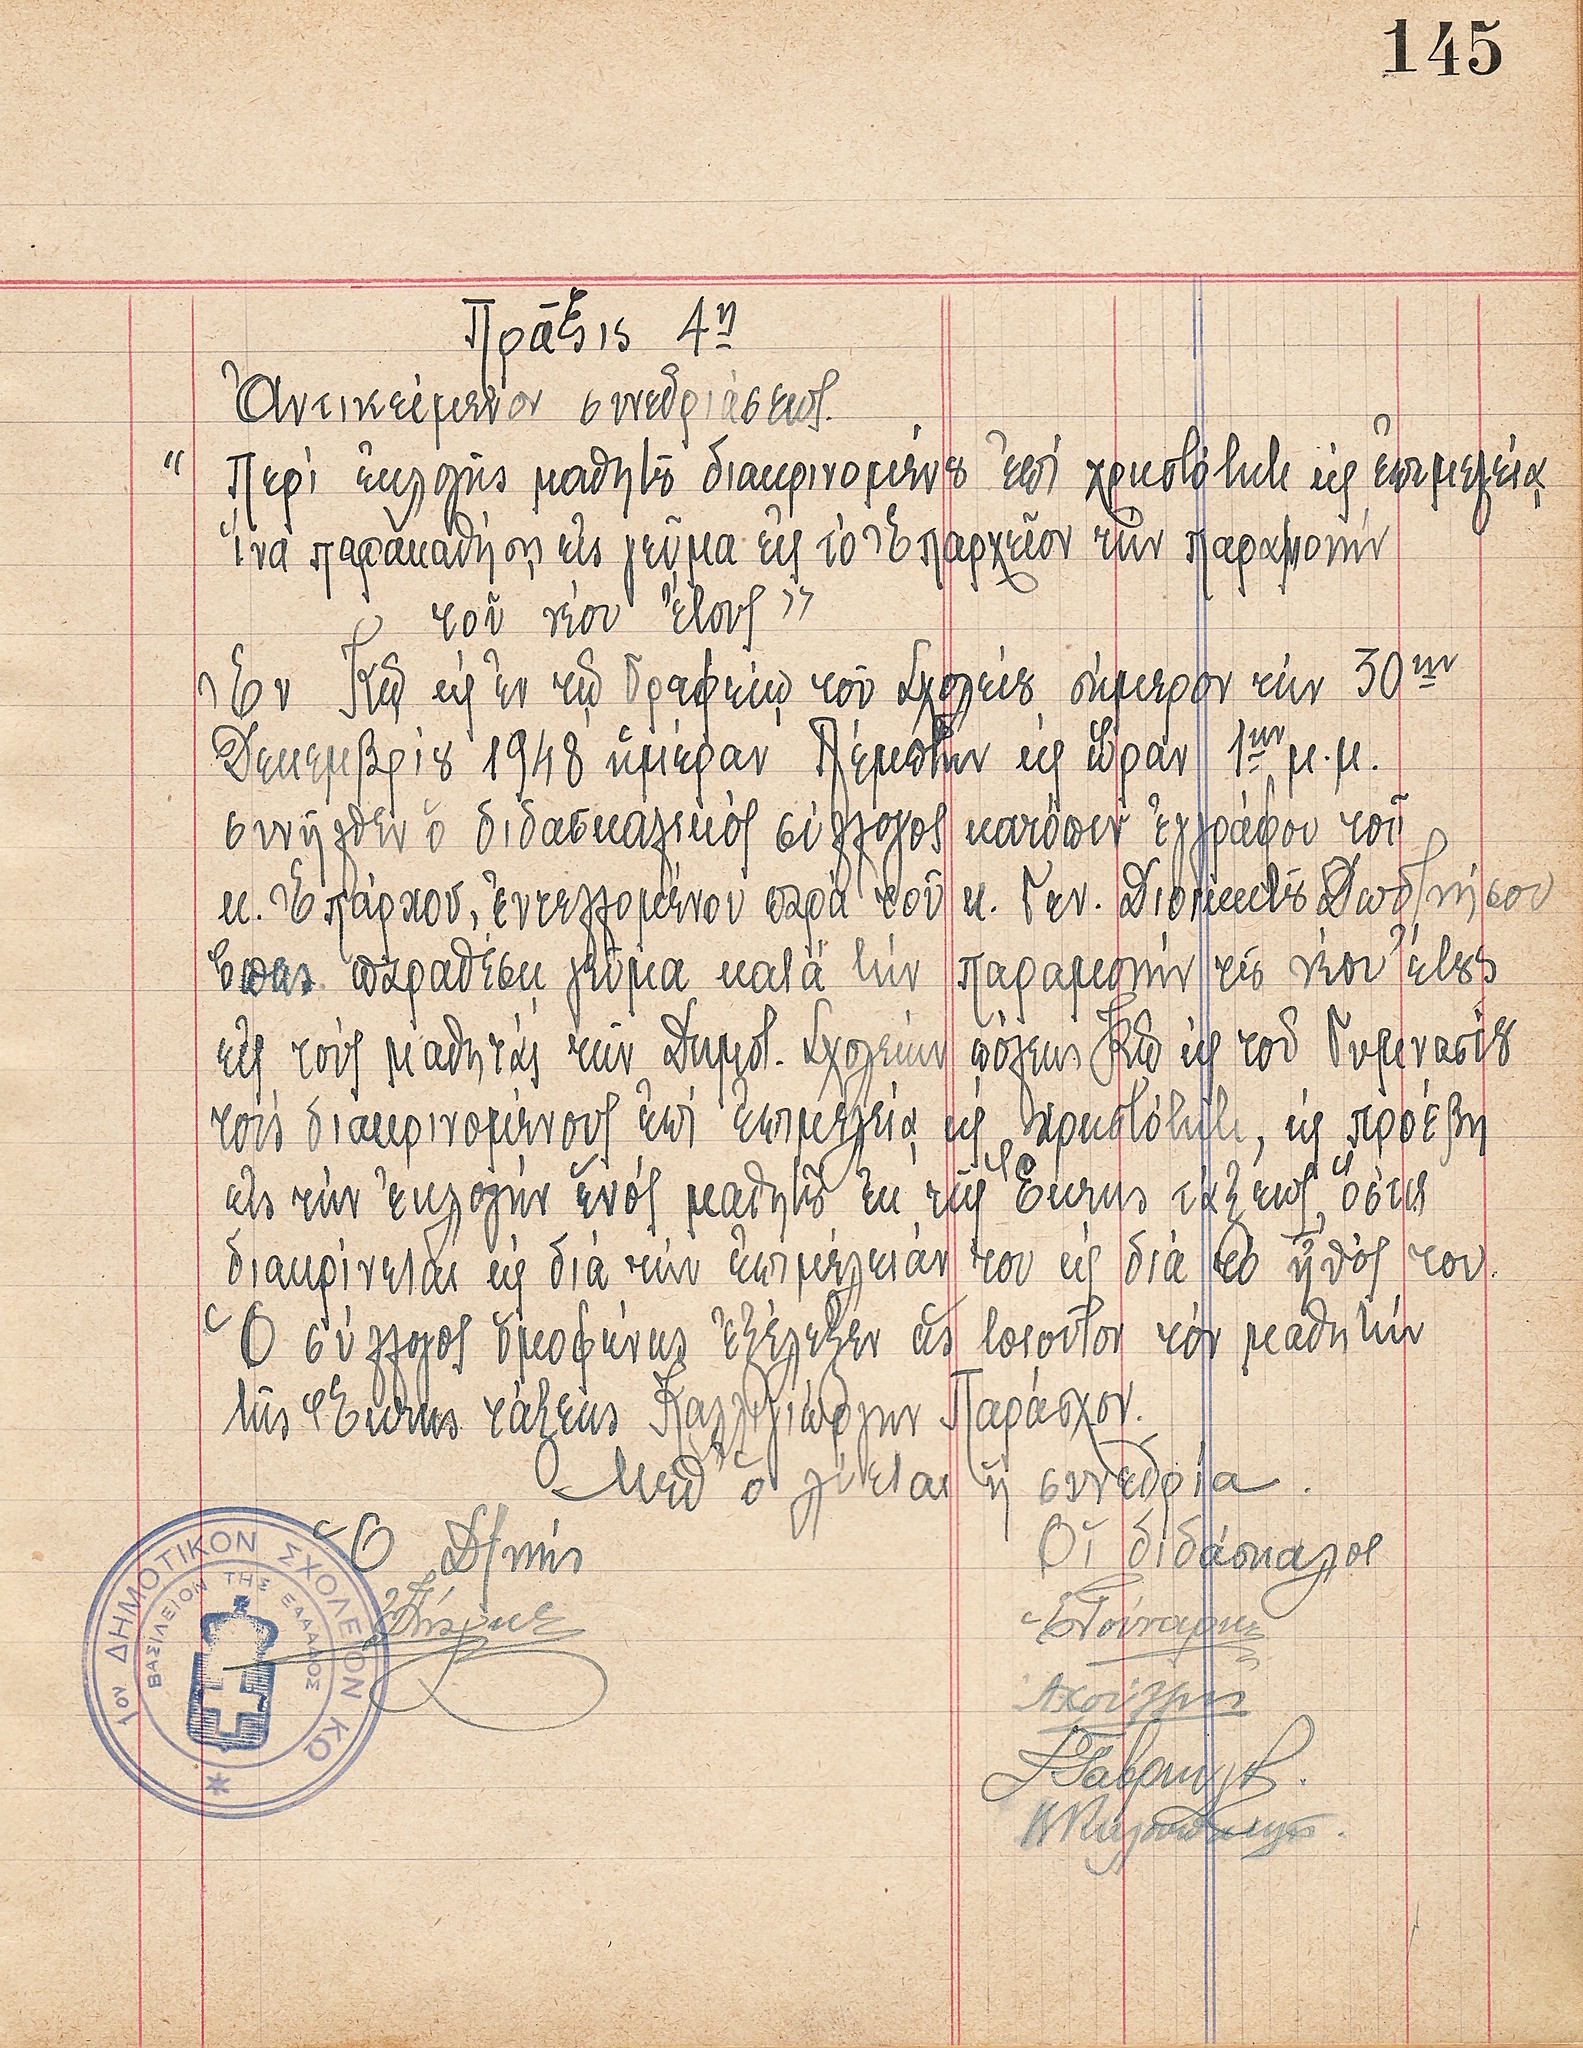 145
Πρᾶξις 4η
Ἀντικείμενον συνεδριάσεως.
“ Περί ἐκλογῆς μαθητοῦ διακρινομένου ἐπί χρηστότητι κ̀ς ἐπιμελείᾳ
ἵνα παρακαθήσῃ εἰς γεῦμα εἰς τό Ἐπαρχεῖον τήν παραμονήν
τοῦ νέου ἔτους”
Ἐν Κῷ κ̀ς ἐν τῷ Γραφείῳ τοῦ Σχολείου σήμερον τήν 30ην
Δεκεμβρίου 1948 ἡμέραν Πέμπτην κ̀ς ὥραν 1ην μ.μ.
συνῆλθεν ὁ διδασκαλικός σύλλογος κατόπιν ἐγγράφου τοῦ
κ. Ἐπάρχου, ἐντελλομένου παρά τοῦ κ. Γεν. Διοικητοῦ Δωδ/νήσου
ὅπως παραθέσῃ γεῦμα κατά τήν παραμονήν τοῦ νέου ἔτους
εἰς τούς μαθητάς τῶν Δημοτ. Σχολείων πόλεως Κῶ κ̀ς τοῦ Γυμνασίου
τούς διακρινομένους ἐπί ἐπιμελείᾳ κ̀ς χρηστότητι, κ̀ς προέβη
εἰς τήν ἐκλογήν ἑνός μαθητοῦ ἐκ τῆς Ἕκτης τάξεως, ὅστις
διακρίνεται κ̀ς διά τήν ἐπιμέλειάν του κ̀ς διά τό ἦθός του.
Ὁ σύλλογος ὁμοφώνως ἐξέλεξεν ὡς τοιοῦτον τόν μαθητήν
τῆς Ἕκτης τάξεως Καλλιγιώργην Παράσχον.
Μεθ' ὅ λύεται ἡ συνεδρία.
Ὁ Δ/ντής
Οἱ διδάσκαλοι
1ον ΔΗΜΟΤΙΚΟΝ ΣΧΟΛΕΙΟΝ ΚΩ
ΒΑΣΙΛΕΙΟΝ ΤΗΣ ΕΛΛΑΔΟΣ